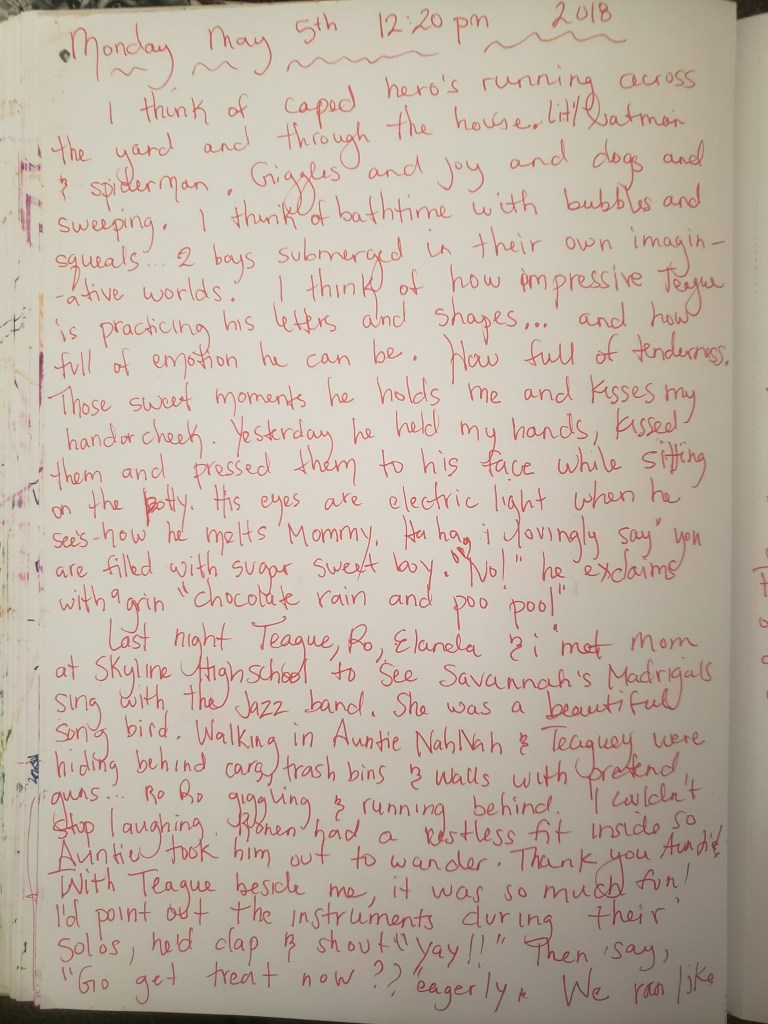 Monday May 5th 12:20 pm 2018
I think of caped hero's running across
the yard and through the house. Lit'l batman
& spiderman. Giggles and joy and dogs and
sweeping. I think of bathtime with bubbles and
squeals... 2 boys submerged in their own imagin-
-ative worlds. I think of how impressive Teague
is practicing his letters and shapes... and how
full of emotion he can be. How full of tenderness.
Those sweet moments he holds me and kisses my
hand or cheek. Yesterday he held my hands, kissed
them and pressed them to his face while sitting
on the potty. His eyes are electric light when he
see's how he melts Mommy. Ha ha, i lovingly say "you
are filled with sugar sweet boy." "No!" he exclaims
with a grin "chocolate rain and poo poo!"
Last night Teague, Ro, Elanda & i met Mom
at Skyline Highschool to see Savannah's Madrigals
sing with the Jazz band. She was a beautiful
song bird. Walking in Auntie NahNah & Teaguey were
hiding behind cars, trash bins & walls with pretend
guns... Ro Ro giggling & running behind. I couldn't
stop laughing. Ronen had a restless fit inside so
Auntie took him out to wander. Thank you Auntie!
With Teague beside me, it was so much fun!
I'd point out the instruments during their
Solos, he'd clap & shout "yay!!" Then say,
"Go get treat now?? eagerly. We ran like